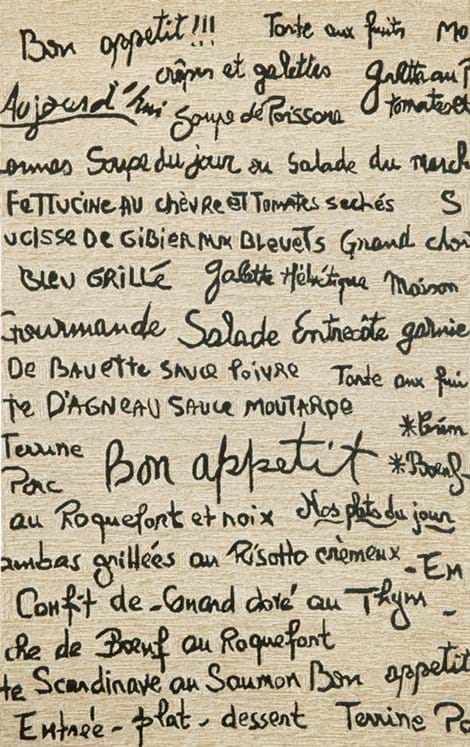 Bon appetit!!! Tarte aux fruits Mo
crêpes et galettes Galette au P
Aujourd'hui Soupe de Poissons tomates et
ormes Soupe du jour ou Salade du march
FETTUCINE AU CHÈVRE ET TOMATES SECHÉS S
UCISSE DE GIBIER AUX BLEUETS Grand choi
BLEU GRILLÉ Galette Hélvétique Maison
Gourmande Salade Entrecôte garnie
DE BAVETTE SAUCE POIVRE Tarte aux frui
TE D'AGNEAU SAUCE MOUTARDE
Terrine Bon appetit *Boeuf
Porc
au Roquefort et noix Nos plats du jour
ambas grillées au Risotto crèmeux - EN
Confit de - Canard doré au Thym -
che de Boeuf au Roquefort
te Scandinave au Saumon Bon appetit
Entrée - plat - dessert Terrine Po